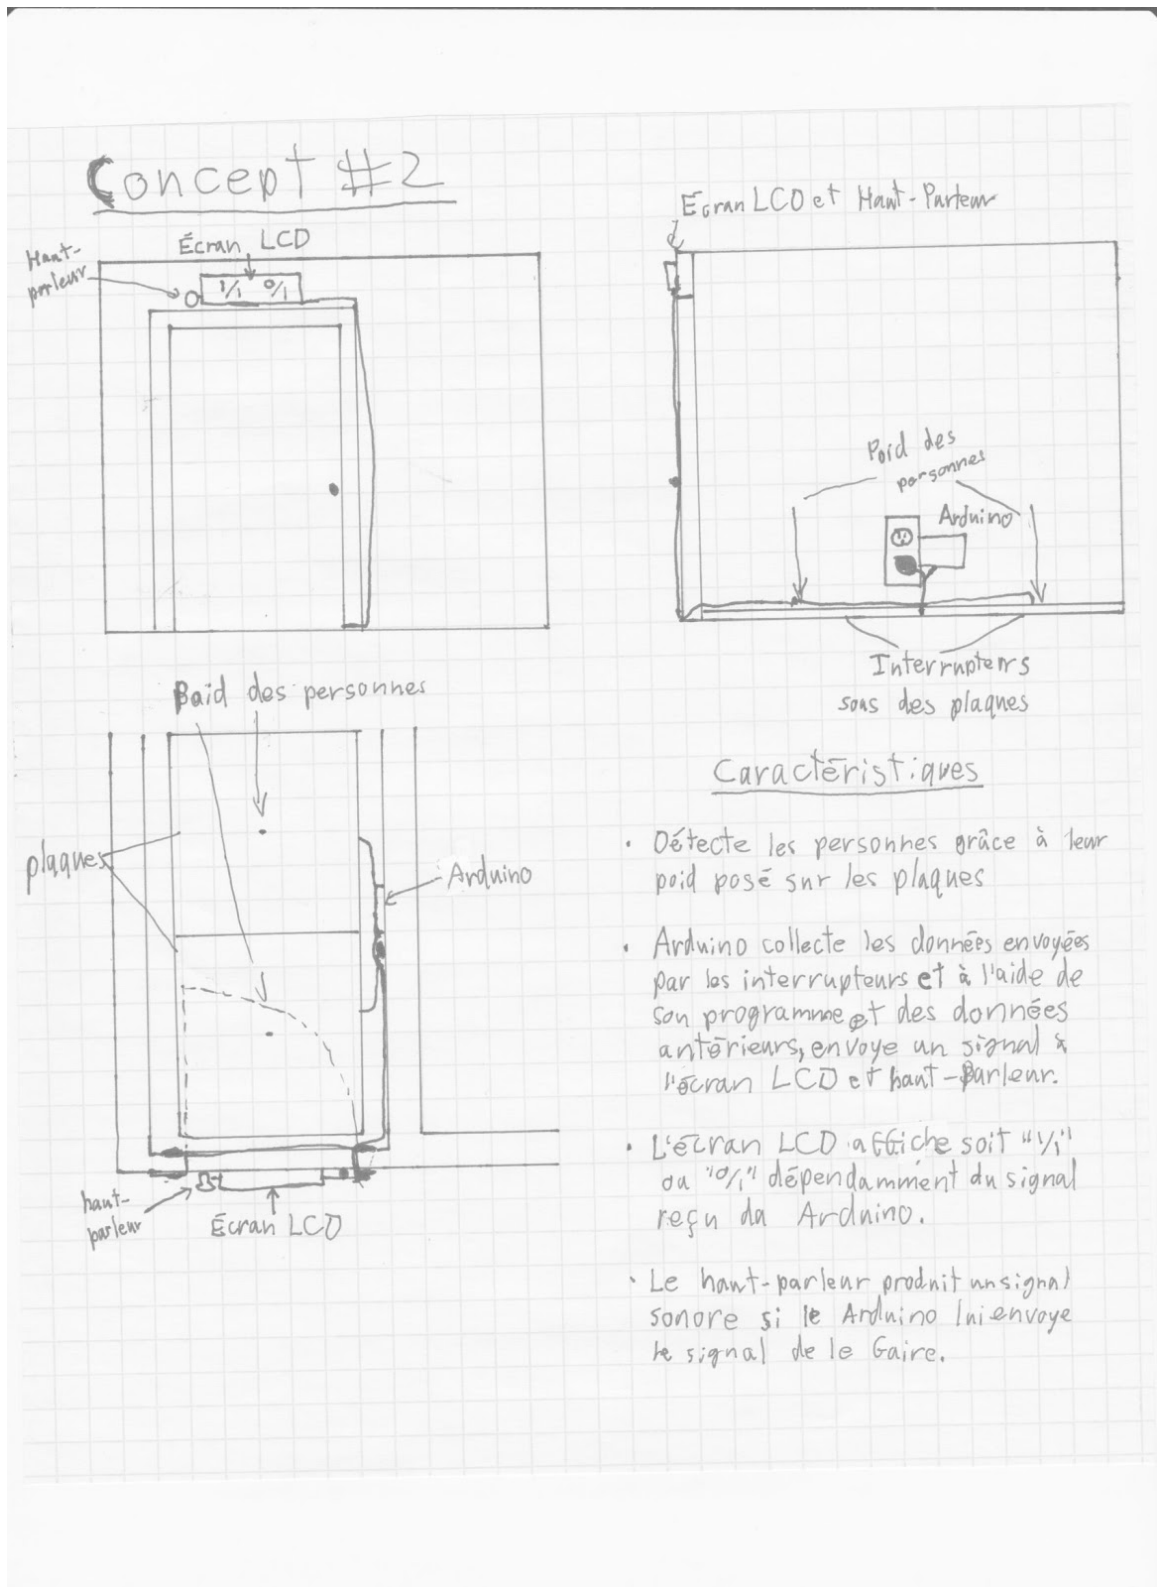 Concept #2
Haut-
parleur
Écran LCD
1/1 0/1
Écran LCD et Haut-Parleur
Poid des
personnes
Arduino
Interrupteurs
sous des plaques
Paid des personnes
plaques
Arduino
haut-
parleur
Écran LCD
Caractéristiques
• Détecte les personnes grâce à leur
poid posé sur les plaques
• Arduino collecte les données envoyées
par les interrupteurs et à l'aide de
son programme et des données
antérieurs, envoye un signal à
l'écran LCD et haut-parleur.
• L'écran LCD affiche soit "1/1"
ou "0/1" dépendamment du signal
reçu da Arduino.
• Le haut-parleur produit un signal
sonore si le Arduino lui envoye
le signal de le Gaire.